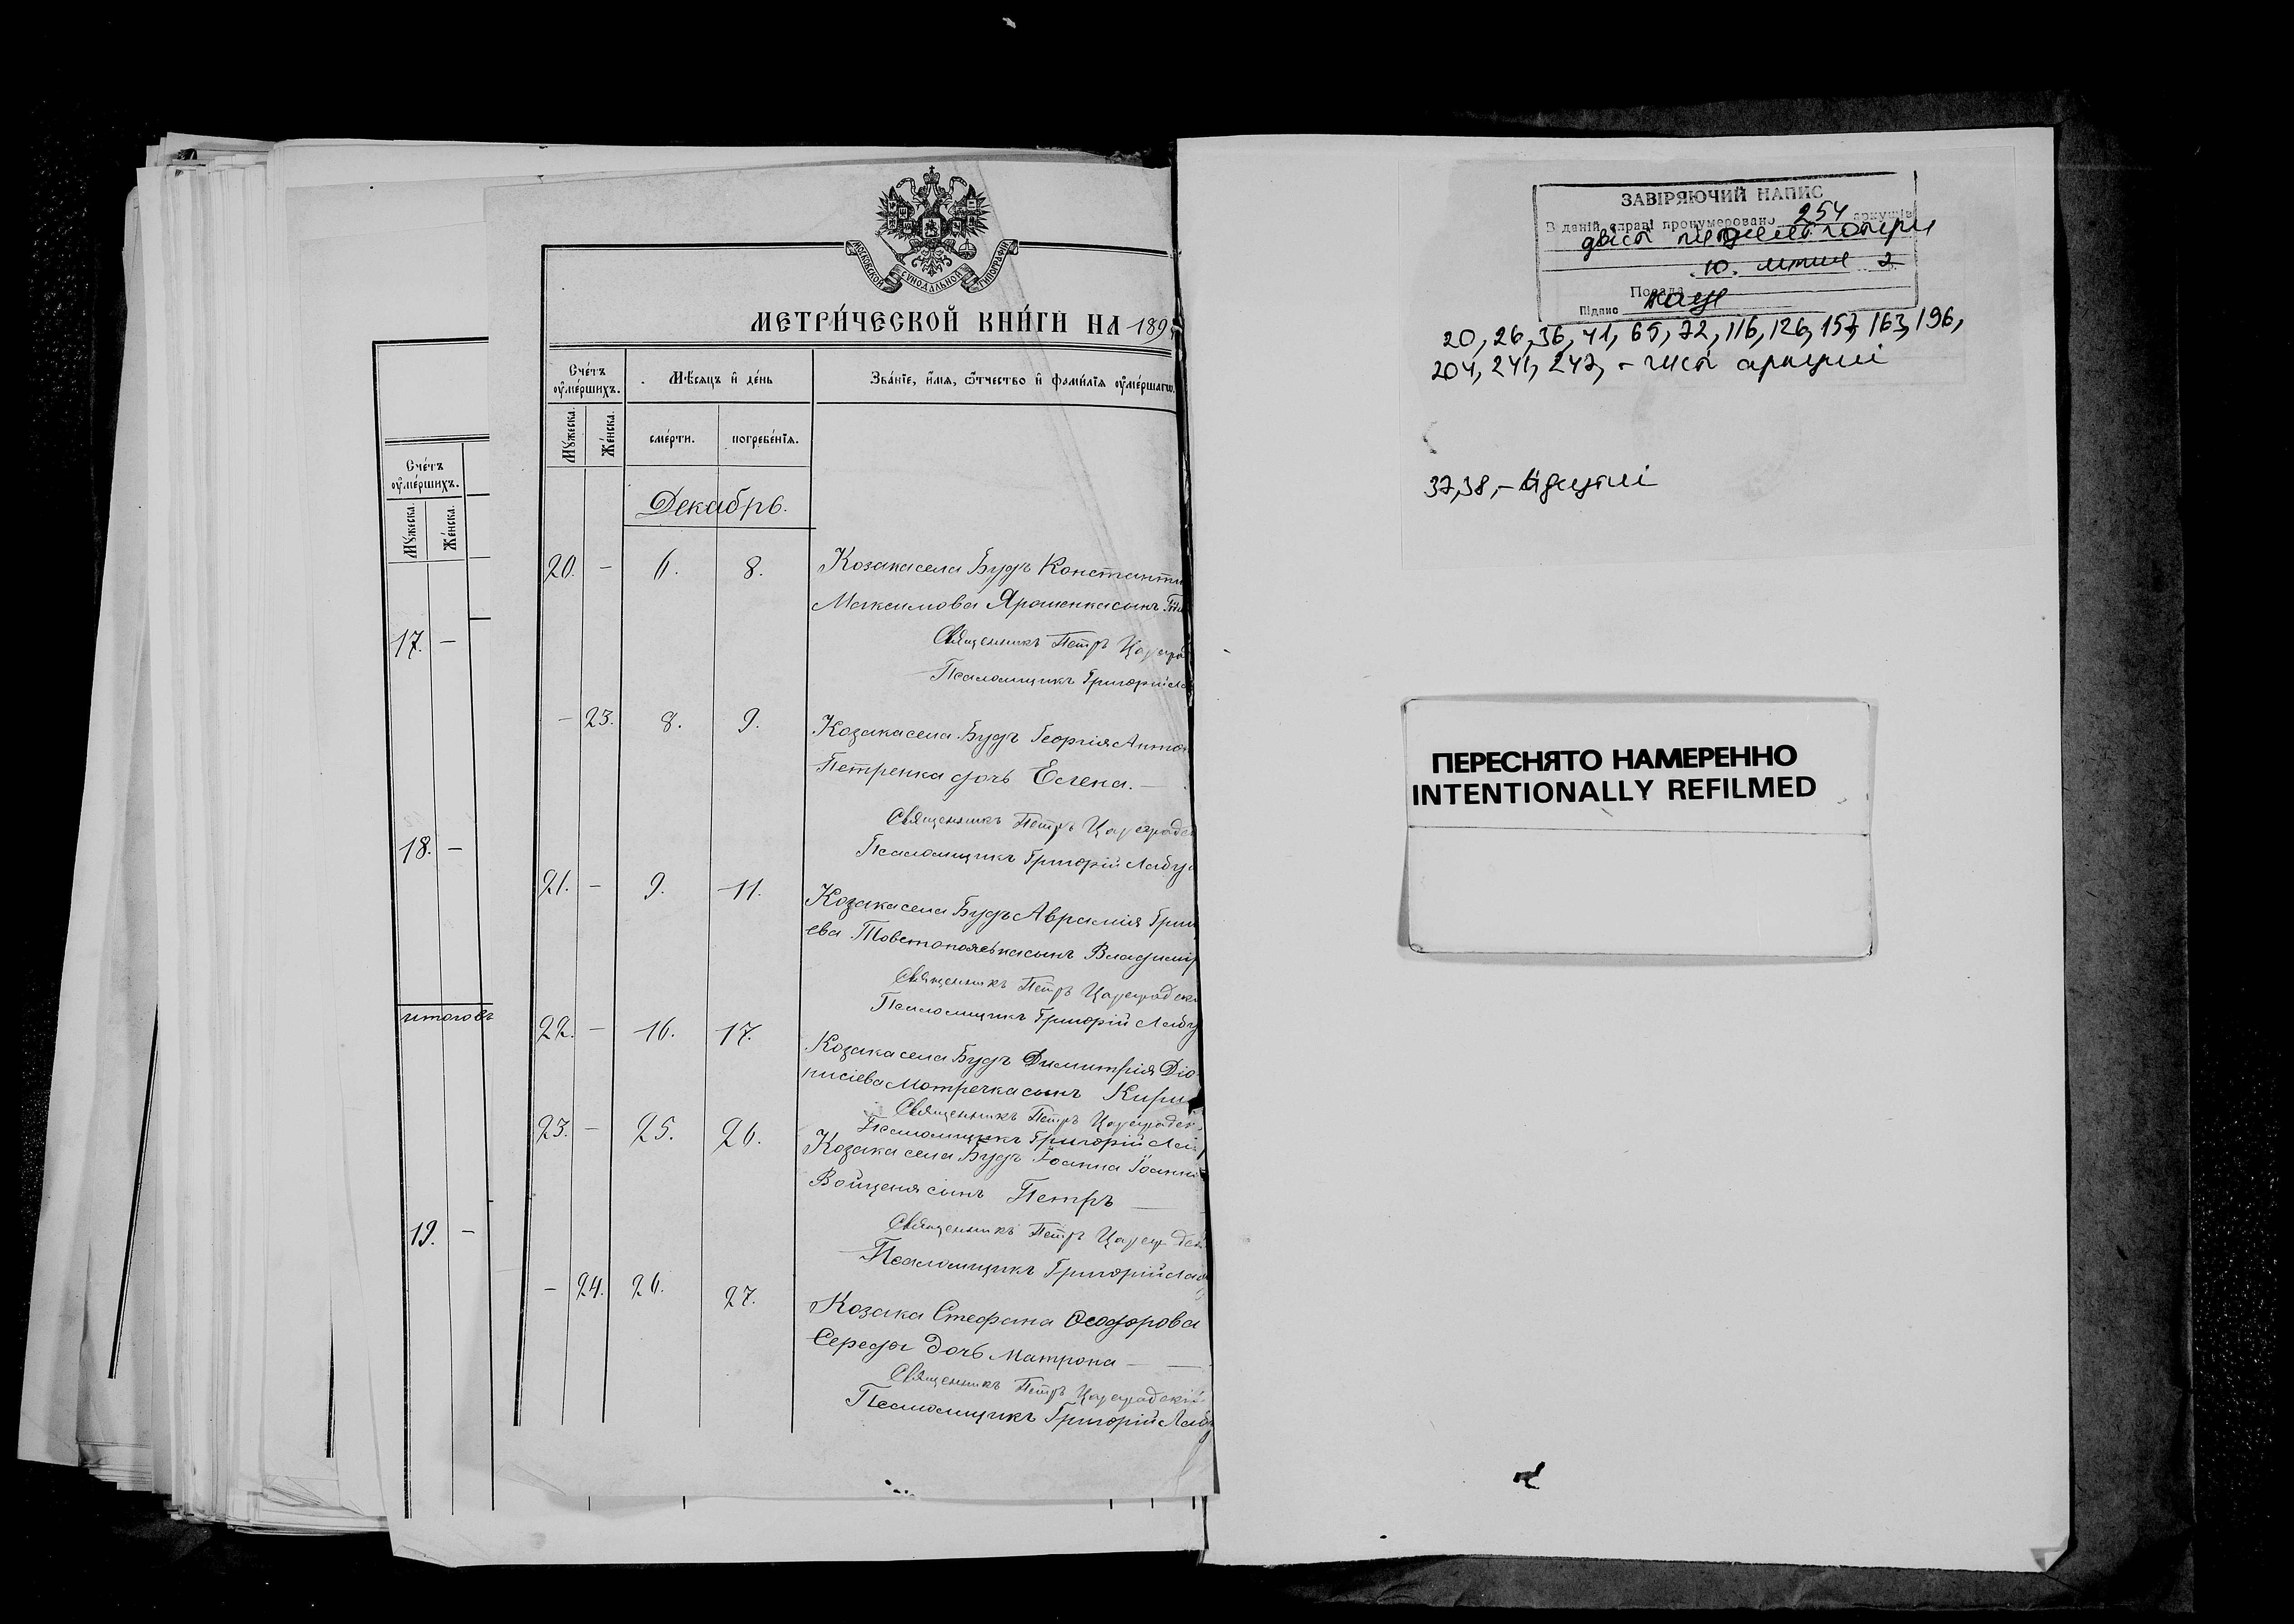 МОСКОВСКОЙ СѴНОДАЛЬНОЙ ТИПОГРАФІИ
МЕТРИ́ЧЕСКОЙ КНИ́ГИ НА 189
Сче́тъ
оу҆ме́ршихъ.
Мѣ́сяцъ и҆ де́нь
Зва́нїе, и҆́мя, ѻ҆́тчество и҆ фами́лїя оу҆ме́ршагѡ.
Мꙋжеска.
Же́нска.
сме́рти.
погребе́нїя.
Декабрь.
20. – 6. 8. Козака села Будъ Константи
Максимова Ярошенка сынъ
Священникъ Петръ Цареград
Псаломщикъ Григорій Ла
– 23. 8. 9. Козака села Будъ Георгія Антон
Петренка дочь Елена. —
Священникъ Петръ Цареградск
Псаломщикъ Григорій Лабу
21. – 9. 11. Козака села Будъ Аврамія Григ
ева Товстопятька сынъ Владимір
Священникъ Петръ Цареградск
Псаломщикъ Григорій Лабу
22. – 16. 17. Козака села Будъ Димитрія Діо
нисіева Мотречка сынъ Кири
Священникъ Петръ Цареградск
Псаломщикъ Григорій Лаб
23. – 25. 26. Козака села Будъ Іоанна Іоанн
Войценя сынъ Петръ —
Священникъ Петръ Цареградск
Псаломщикъ Григорій Лаб
– 24. 26. 27. Козака Стефана Ѳеодорова
Середы дочь Матрона —
Священникъ Петръ Цареградскій
Псаломщикъ Григорій Лабу
Сче́тъ
оу҆ме́ршихъ.
Мꙋжеска.
Же́нска.
17. –
18. –
итого въ
19. –
ЗАВІРЯЮЧИЙ НАПИС
В даній справі пронумеровано 254 аркушів
двісті п'ятдесят чотири
Посада
Підпис
20, 26, 36, 41, 65, 72, 116, 126, 157, 163, 196,
204, 241, 247, – чисті аркуші
37, 38, –
ПЕРЕСНЯТО НАМЕРЕННО
INTENTIONALLY REFILMED